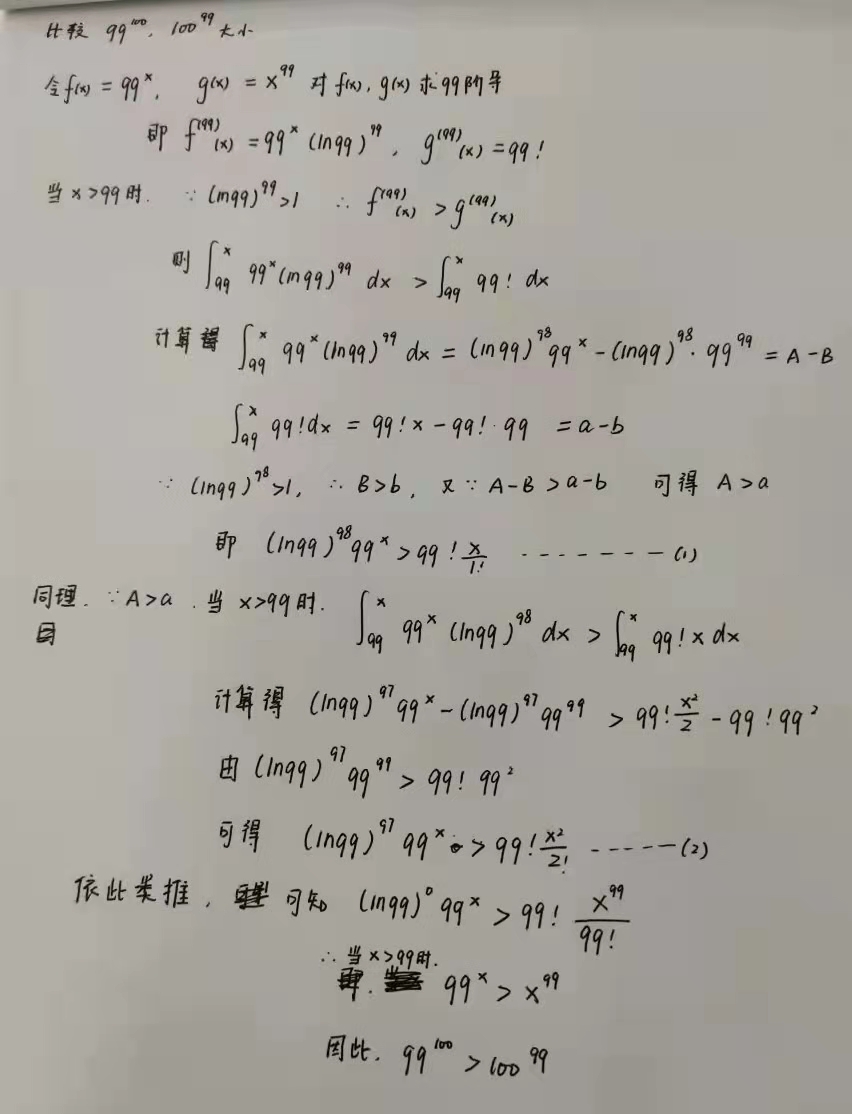 比较 99^100, 100^99 大小
令f(x) = 99^x, g(x) = x^99 对 f(x), g(x) 求99阶导
即 f^(99)(x) = 99^x (ln99)^99, g^(99)(x) = 99!
当 x>99时. ∵ (ln99)^99 >1 ∴ f^(99)(x) > g^(99)(x)
则 ∫_99^x 99^x (ln99)^99 dx > ∫_99^x 99! dx
计算得 ∫_99^x 99^x (ln99)^99 dx = (ln99)^98 99^x - (ln99)^98 · 99^99 = A-B
∫_99^x 99! dx = 99! x - 99! · 99 = a-b
∵ (ln99)^98 >1, ∴ B>b, 又∵ A-B > a-b 可得 A>a
即 (ln99)^98 99^x > 99! x/1! -------- (1)
同理. ∵ A>a . 当 x>99时. ∫_99^x 99^x (ln99)^98 dx > ∫_99^x 99! x dx
计算得 (ln99)^97 99^x - (ln99)^97 99^99 > 99! x²/2 - 99! 99²
由 (ln99)^97 99^99 > 99! 99²
可得 (ln99)^97 99^x > 99! x²/2! ------ (2)
依此类推, 可知 (ln99)^0 99^x > 99! x^99/99!
∴ 当 x>99时.
99^x > x^99
因此. 99^100 > 100^99